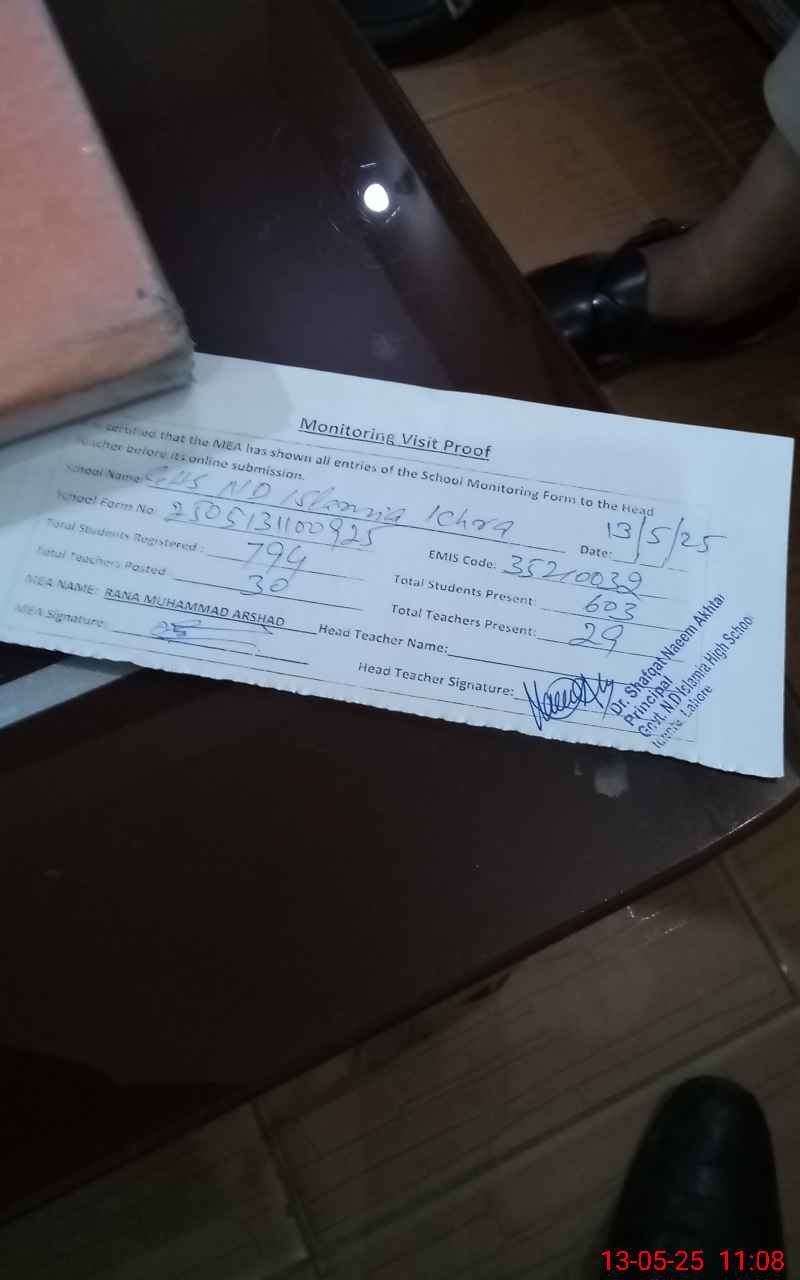 Monitoring Visit Proof
certified that the MEA has shown all entries of the School Monitoring Form to the Head
Teacher before its online submission.
School Name: GHS ND Islamia Ichra Date: 13/5/25
School Form No: 2505131100925 EMIS Code: 35210039
Total Students Registered : 794 Total Students Present: 603
Total Teachers Posted : 30 Total Teachers Present: 29
MEA NAME: RANA MUHAMMAD ARSHAD Head Teacher Name:
MEA Signature: Head Teacher Signature:
Dr. Shafqat Naeem Akhtar
Principal
Govt. N.D Islamia High School
Lahore
13-05-25 11:08